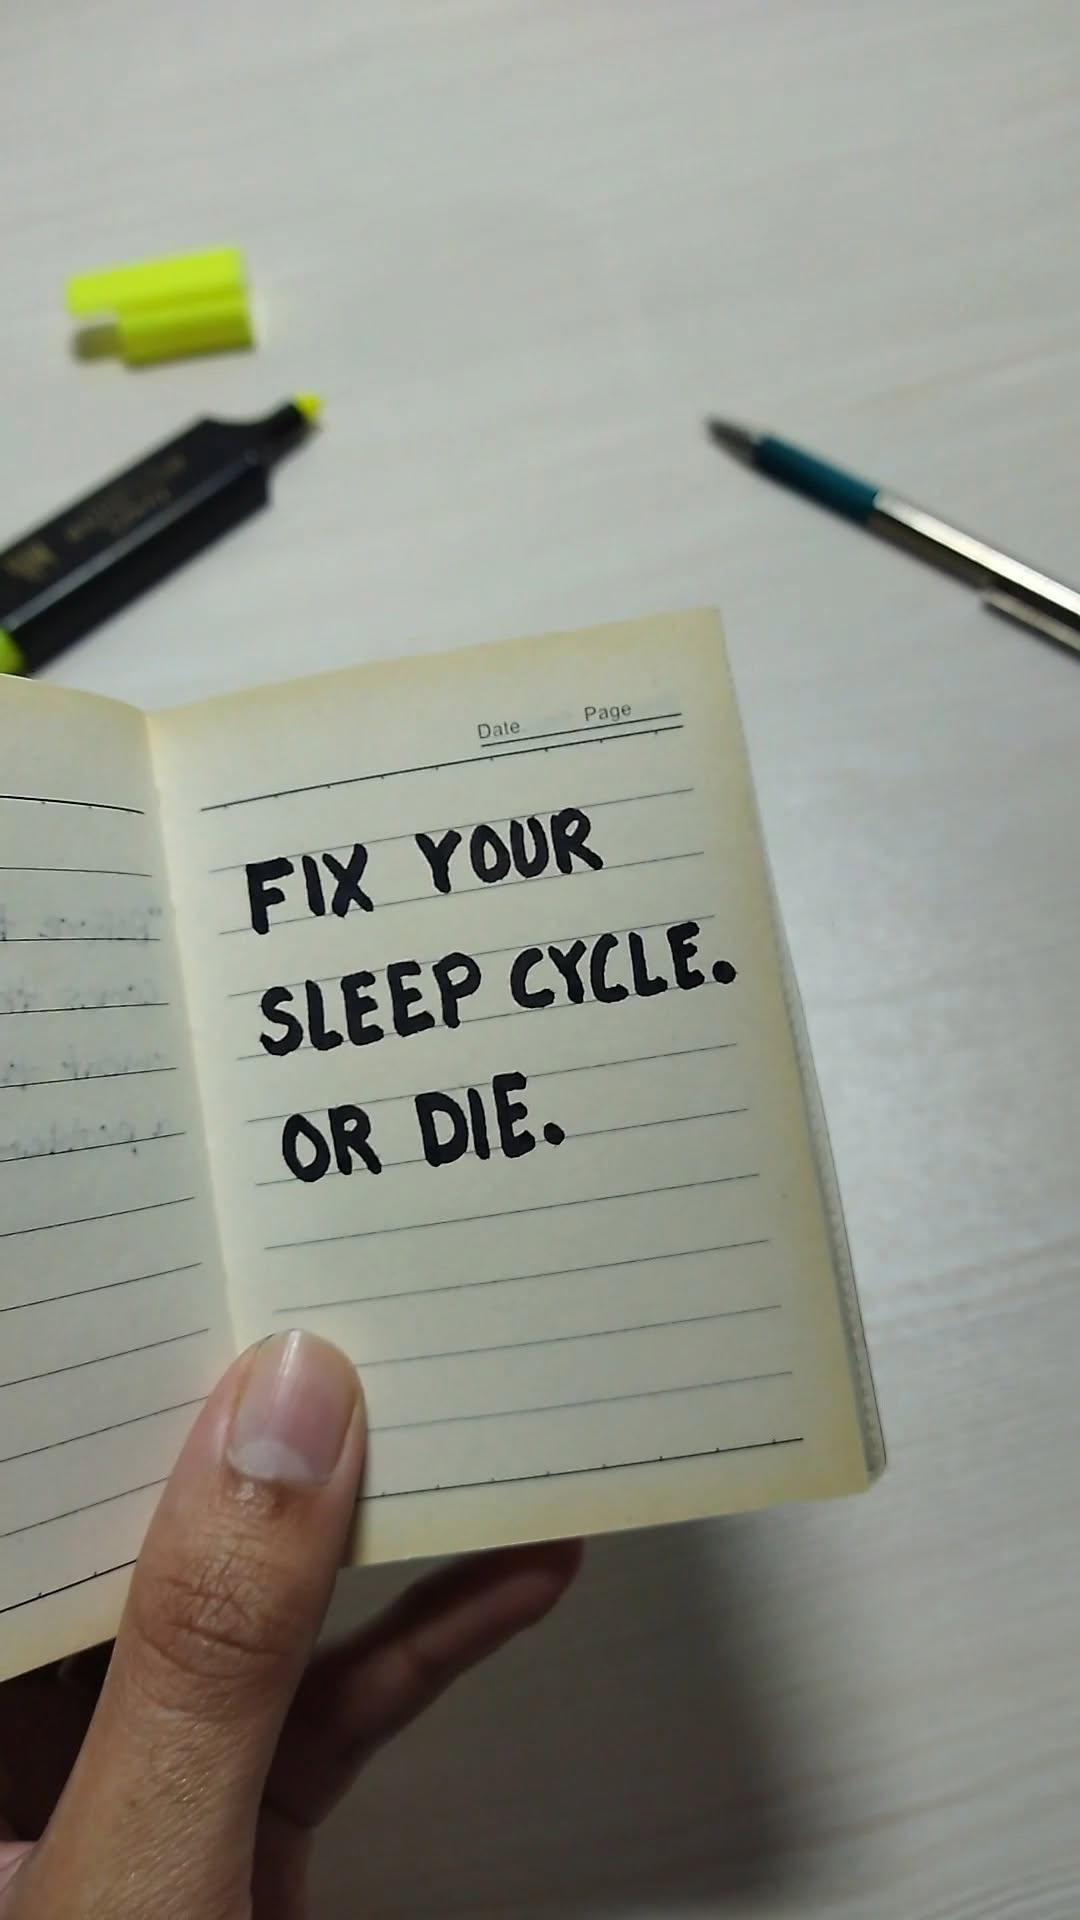 Date Page
FIX YOUR
SLEEP CYCLE.
OR DIE.